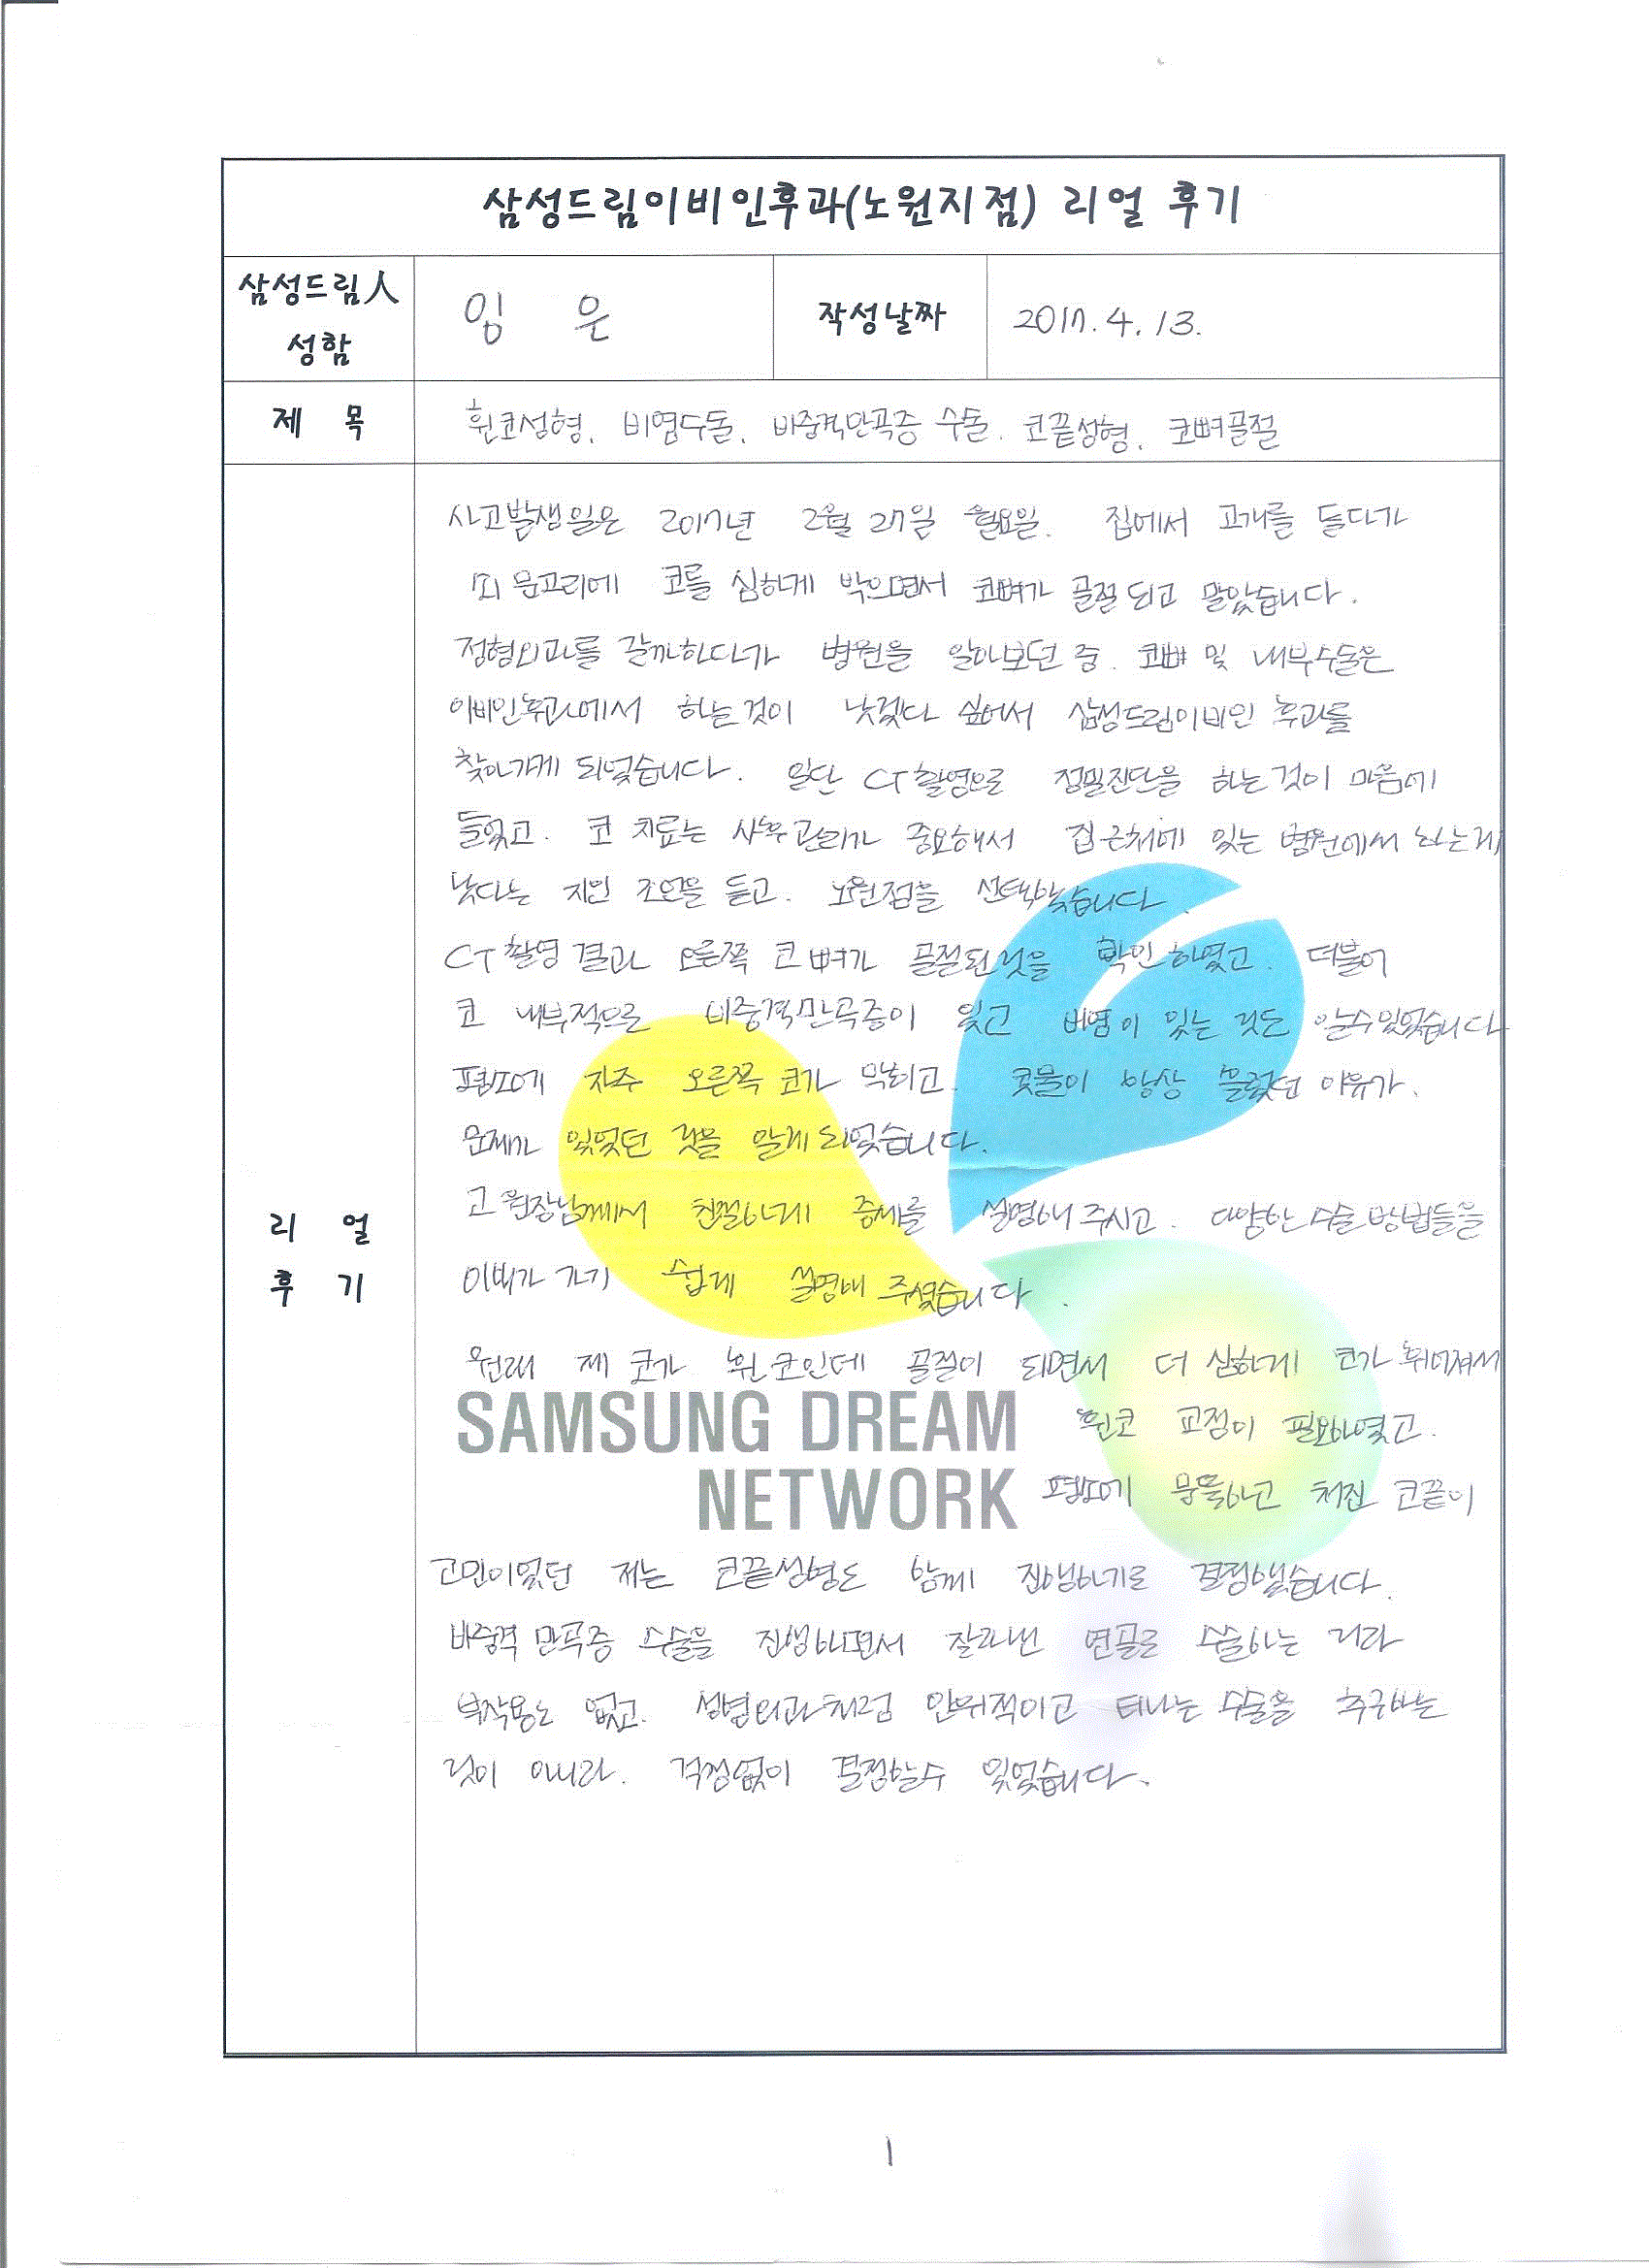 삼성드림이비인후과(노원지점) 리얼 후기
삼성드림人 성함
임 은
작성날짜
2017. 4. 13.
제 목
휜코성형, 비염수술, 비중격만곡증 수술, 코끝성형, 코뼈골절
사고발생일은 2017년 2월 27일 월요일. 집에서 고개를 들다가
문고리에 코를 심하게 박으면서 코뼈가 골절되고 말았습니다.
정형외과를 갈까하다가 병원을 알아보던 중. 코뼈 및 내부수술은
이비인후과에서 하는것이 낫겠다 싶어서 삼성드림이비인후과를
찾아가게 되었습니다. 일단 CT촬영으로 정밀진단을 하는것이 마음에
들었고. 코 치료는 사후관리가 중요해서 집근처에 있는 병원에서 하는게
낫다는 지인 조언을 듣고. 노원점을 선택하였습니다.
CT촬영결과 오른쪽 코뼈가 골절된것을 확인하였고. 더불어
코 내부적으로 비중격만곡증이 있고 비염이 있는 것도 알수있었습니다
평소에 자주 오른쪽 코가 막히고. 콧물이 항상 흘렀던 이유가.
문제가 있었던 것을 알게되었습니다.
고원장님께서 친절하게 증세를 설명해 주시고. 다양한 수술방법들을
이해가 가기 쉽게 설명해 주셨습니다.
원래 제 코가 휜코인데 골절이 되면서 더 심하게 코가 휘어져서
SAMSUNG DREAM
휜코 교정이 필요하였고.
NETWORK
평소에 뭉툭하고 처진 코끝이
고민이었던 저는 코끝성형도 함께 진행하기로 결정했습니다.
비중격만곡증 수술을 진행하면서 잘라낸 연골로 수술하는 거라
부작용도 없고. 성형외과처럼 인위적이고 티나는 수술을 추구하는
것이 아니라. 걱정없이 결정할수 있었습니다.
리 얼
후 기
1